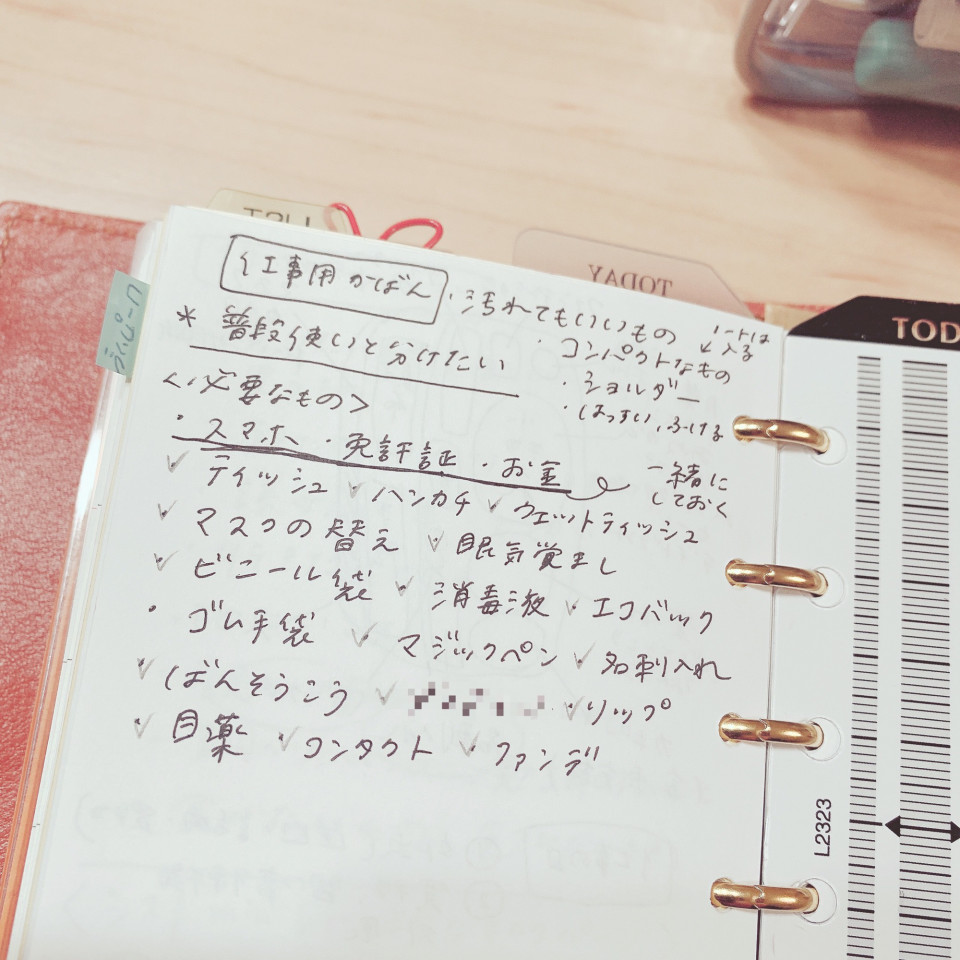 LIST
TODAY
TOD
仕事用かばん
・汚れてもいいもの
ノートは
↙入る
・コンパクトなもの
・ショルダー
・はっすい、ふける
＊普段使いと分けたい
＜必要なもの＞
・スマホ ・免許証 ・お金
一緒に
しておく
✓ティッシュ ✓ハンカチ ✓ウェットティッシュ
✓マスクの替え ✓眠気覚まし
✓ビニール袋 ✓消毒液 ・エコバック
・ゴム手袋 ✓マジックペン ✓名刺入れ
✓ばんそうこう ✓リップ
✓目薬 ✓コンタクト ✓ファンデ
L2323